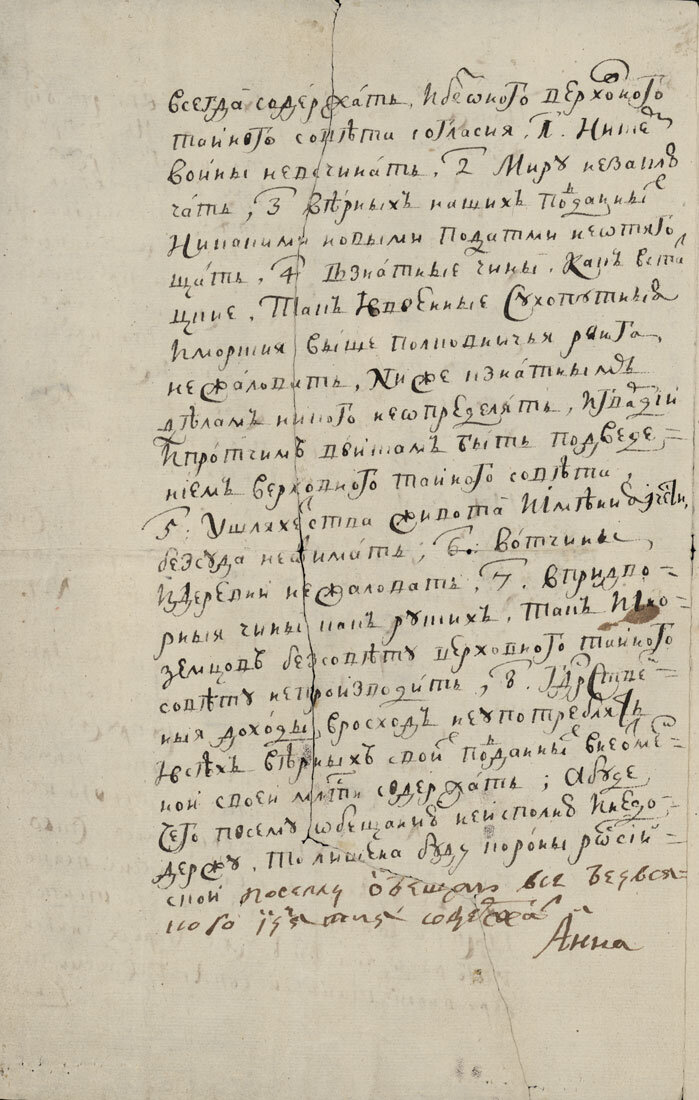 всегда содержать, и безоного верховного
тайного совѣта согласия, 1. Нискѣмъ
войны невсчинать, 2 Миру незаклю
чать, 3 вѣрныхъ нашихъ подданныхъ
никакими новыми податми неотяго
щать, 4 Взнатные чины, какъ встац
цкие, такъ ивоенные сухопутныя
иморския выще полковничья ранга,
нежаловать, ниже кзнатнымъ
дѣламъ никого неопределять, игвардиї
ипротчимъ войскам быть подведе=
ниемъ верховного тайного совѣта,
5. Ушляхетства живота иимѣния ичести,
безсуда неотимать; 6. вотчины,
идеревни нежаловать, 7. впридво=
рныя чины какъ руских, такъ ино=
земцовъ безсовѣту верховного тайного
совѣту непроизводить, 8. Гдрственн=
ныя доходы, вросходъ неупотреблять
ивсѣхъ вѣрныхъ своих подданных внеотмен=
ной своей млсти содержать; Абуде
чего посему обещанию неисполню инедо=
держу, толишена буду короны росиї=
ской посему обещаюс все безвся=
кого изятия содержат
Анна